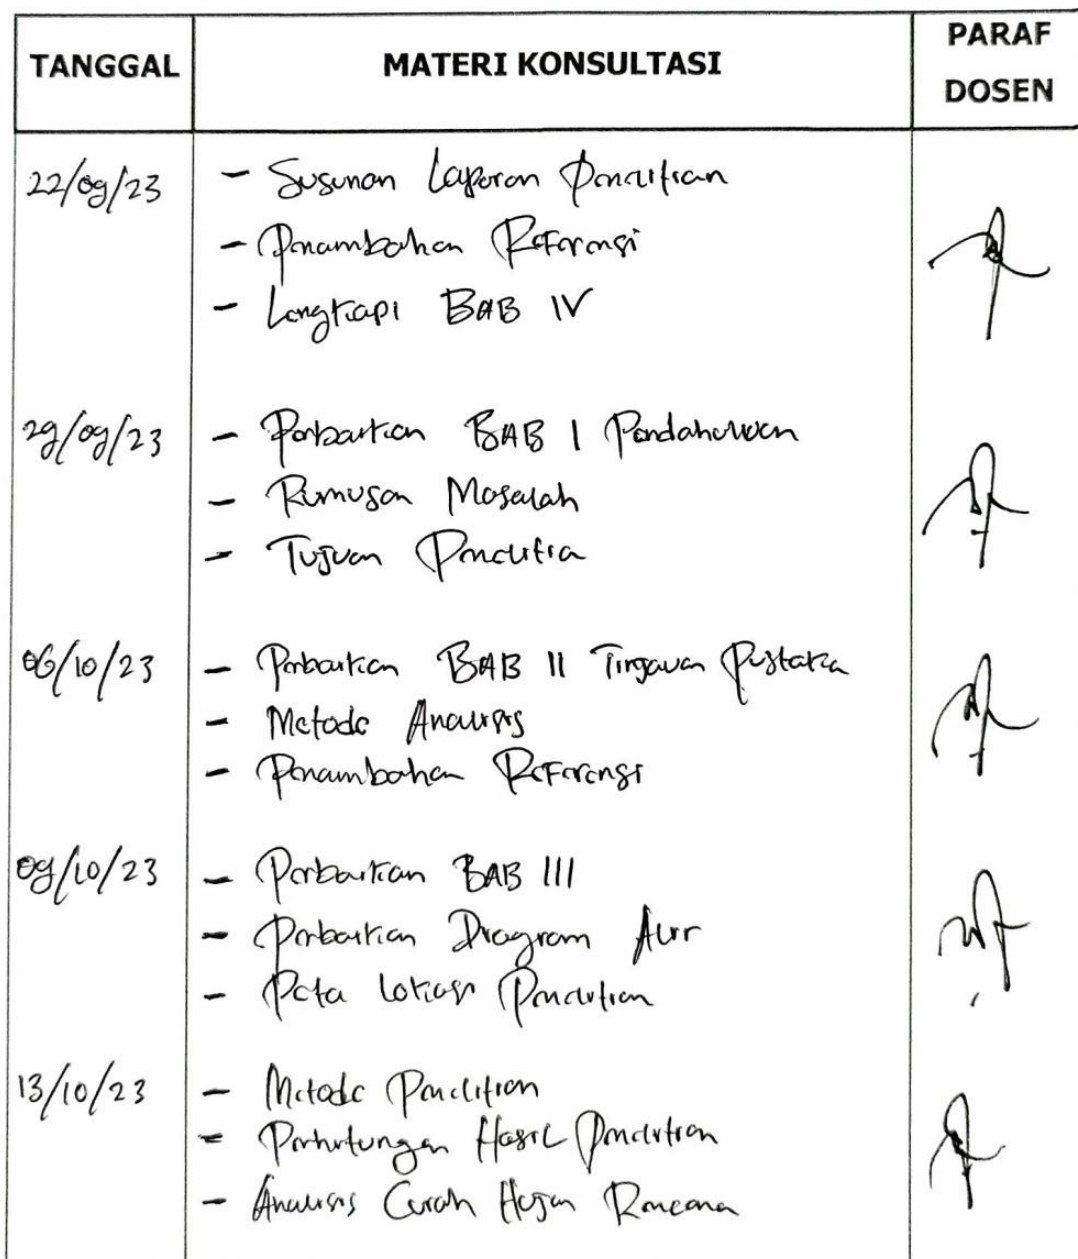 TANGGAL MATERI KONSULTASI PARAF DOSEN
22/09/23 - Susunan Laporan Penelitian
- Penambahan Referensi
- Lengkapi BAB IV
29/09/23 - Perbaikan BAB I Pendahuluan
- Rumusan Masalah
- Tujuan Penelitia
06/10/23 - Perbaikan BAB II Tinjauan Pustaka
- Metode Analisis
- Penambahan Referensi
09/10/23 - Perbaikan BAB III
- Perbaikan Diagram Alir
- Peta Lokasi Penelitian
13/10/23 - Metode Penelitian
- Perhitungan Hasil Penelitian
- Analisis Curah Hujan Rencana